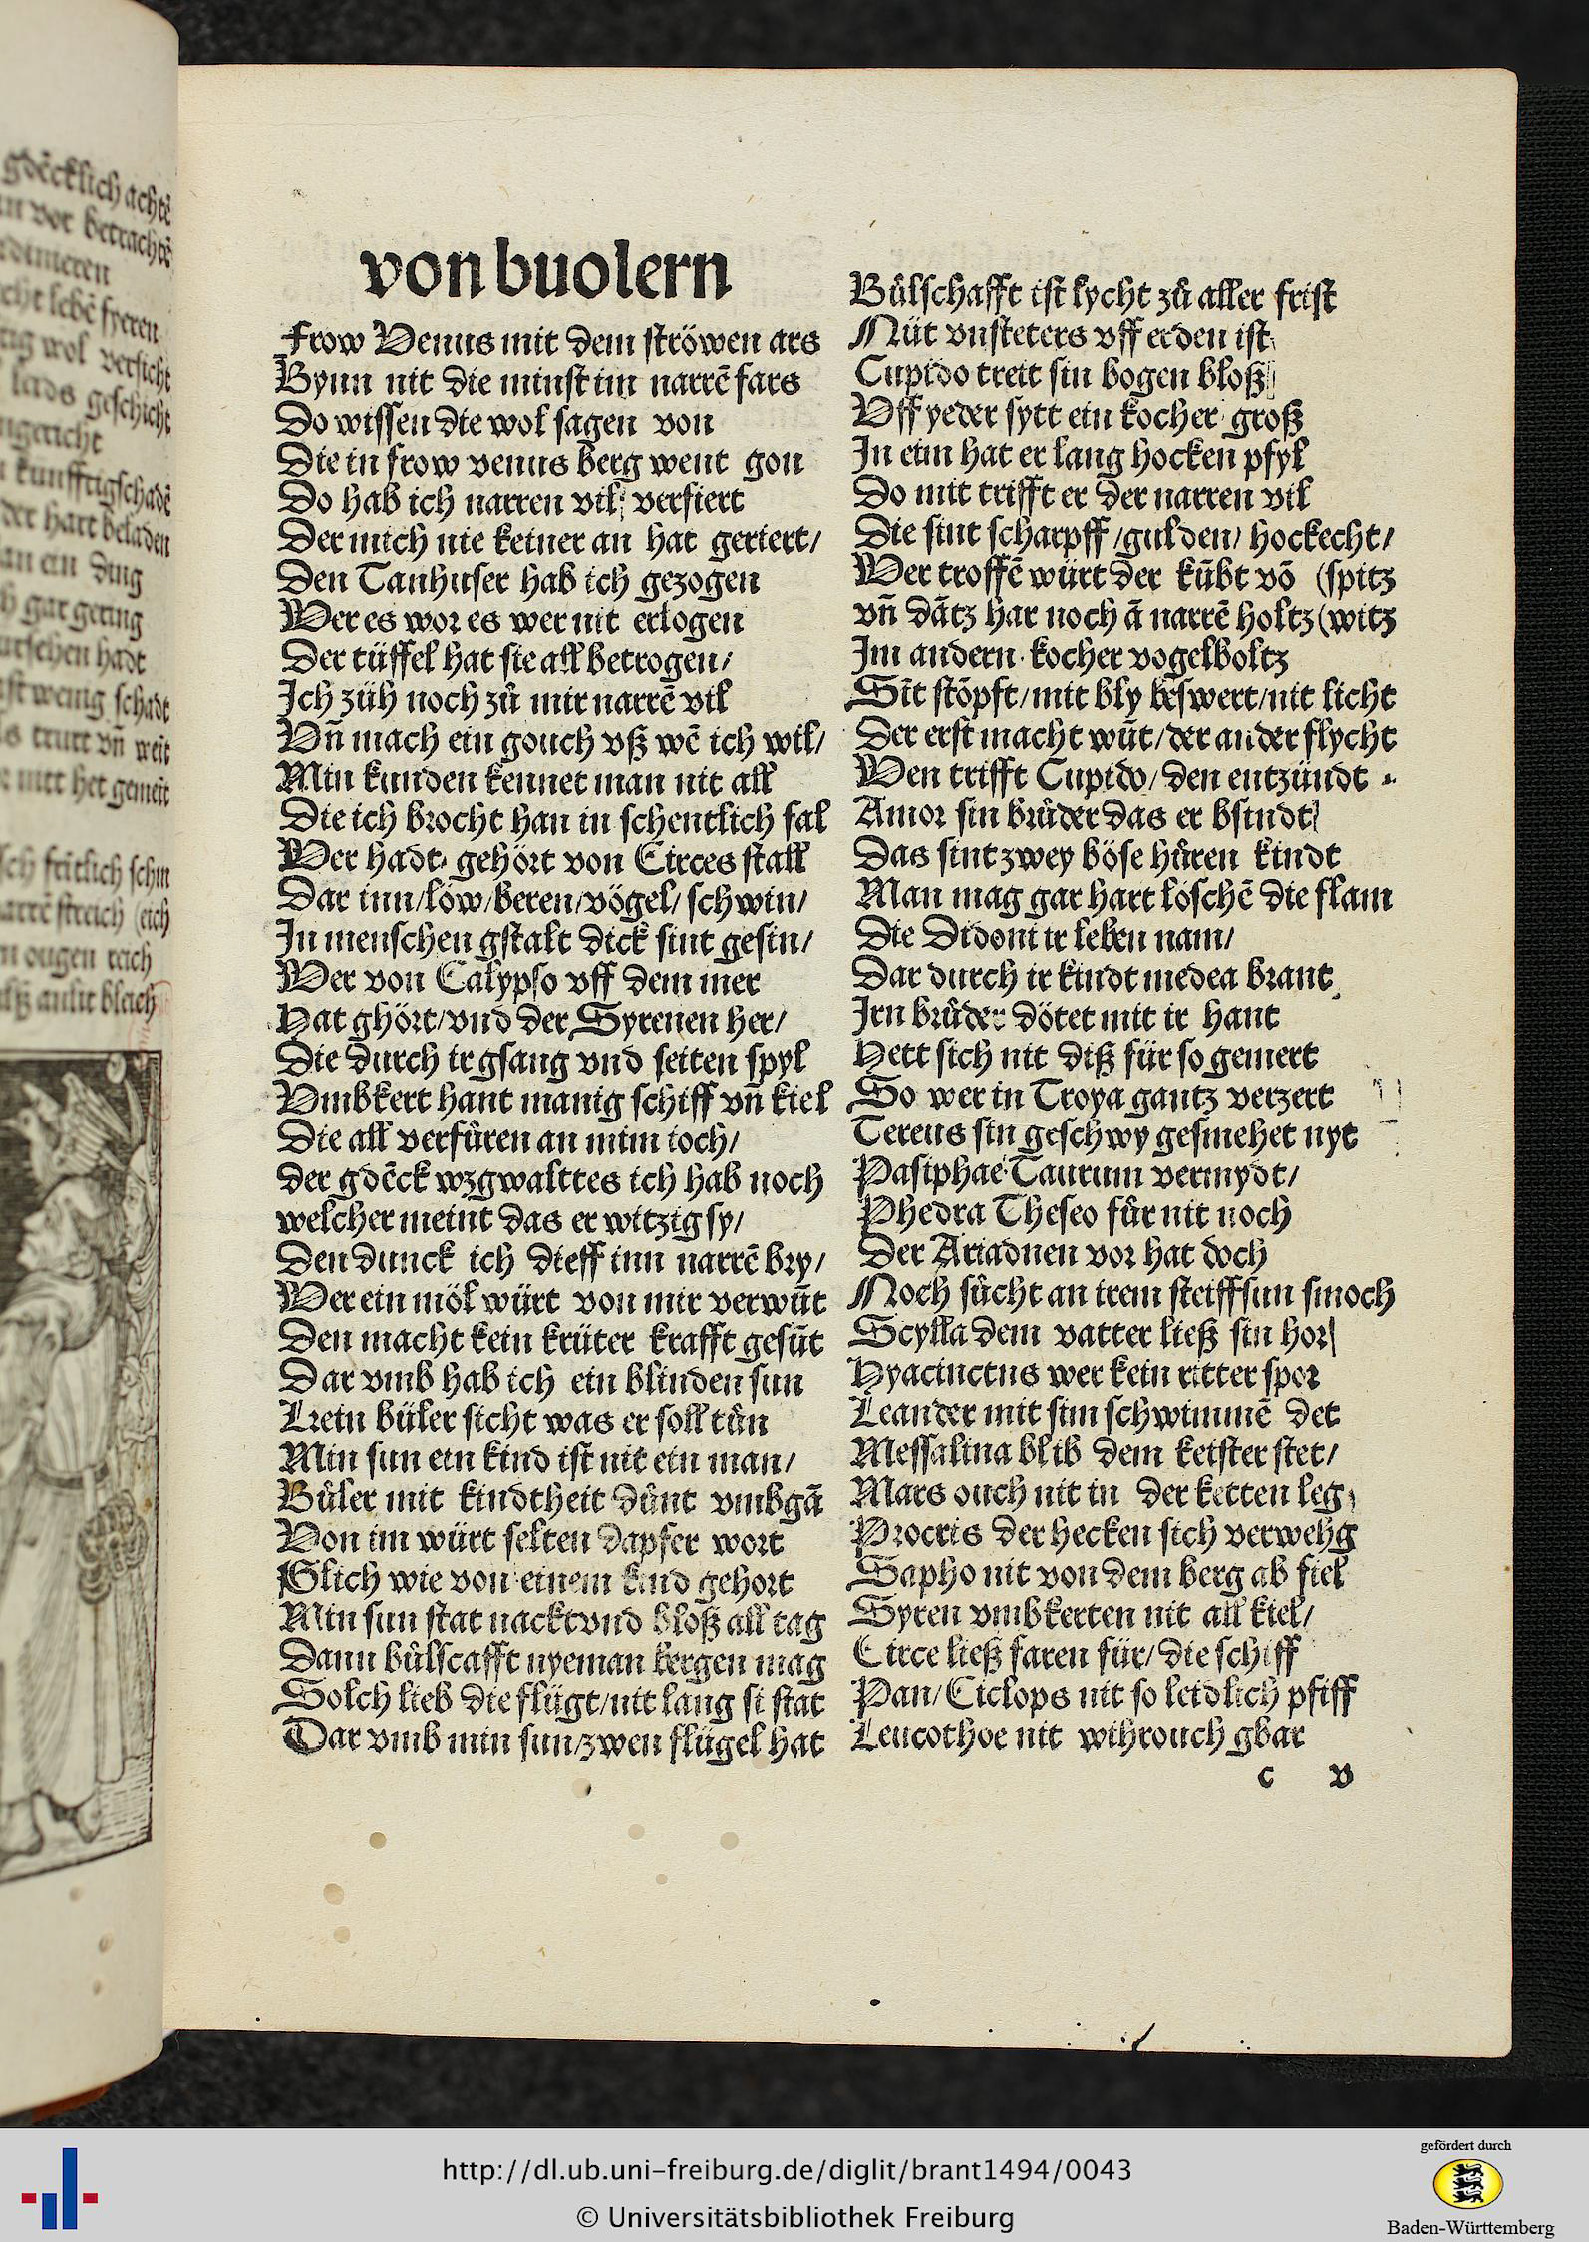 gdēcklich achtē
vor betrachtē
lebē fyeren
wol versicht
leids geschicht
kunfftigschadē
der hart beladen
an ein ding
gar gering
wenig schadt
trurt vn̄ weit
nit het gemeit
schin
streich (eich
ougen reich
bleich
von buolern
Frow Venus mit dem ströwen ars
Bynn nit die minst im narrē fars
Do wissen die wol sagen von
Die in frow venus berg went gon
Do hab ich narren vil verfiert
Der mich nie keiner an hat geriert/
Den Tanhuser hab ich gezogen
Wer es wor es wer nit erlogen
Der tüffel hat sie all betrogen/
Ich züh noch zů mir narrē vil
Vn̄ mach ein gouch vß wē ich wil/
Min kunden kennet man nit all
Die ich brocht han in schentlich fal
Wer hadt gehört von Circes stall
Dar inn/löw/beren/vögel/schwin/
In menschen gstalt dick sint gesin/
Wer von Calypso vff dem mer
Hat ghört/vnd der Syrenen her/
Die durch ir gsang vnd seiten spyl
Vmbkert hant manig schiff vn̄ kiel
Die all verfůren an mim ioch/
der gdēck wz gwalttes ich hab noch
welcher meint das er witzig sy/
Den dunck ich dieff inn narrē bry/
Wer ein möl würt von mir verwūt
Den macht kein krüter krafft gesūt
Dar vmb hab ich ein blinden sun
Kein büler sicht was er soll tůn
Min sun ein kind ist nit ein man/
Bůler mit kindtheit důnt vmbgā
Von im würt selten dapfer wort
Glich wie von einem kind gehort
Min sun stat nackt vnd bloß all tag
Dann bůlscafft nyeman bergen mag
Solch lieb die flügt/nit lang si stat
Dar vmb min sun/zwen flügel hat
Bůlschafft ist lycht zů aller frist
Nüt vnsteters vff erden ist
Cupido treit sin bogen bloß
Vff yeder sytt ein kocher groß
In eim hat er lang hocken pfyl
Do mit trifft er der narren vil
Die sint scharpff/gulden/hockecht/
Wer troffē würt der kūbt vō (spitz
vn̄ dātz har noch ā narrē holtz (witz
Im andern kocher vogelboltz
Sīt stōpft/mit bly beswert/nit licht
Der erst macht wūt/der ander flycht
Wen trifft Cupido/den entzündt
Amor sin brůder das er bfindt
Das sint zwey böse hůren kindt
Man mag gar hart löschē die flam
Die Didoni ir leben nam/
Dar durch ir kindt medea brant
Irn brůder dötet mit ir hant
Hett sich nit diß für so gemert
So wer in Troya gantz verzert
Tereus sin geschwy gesmehet nyt
Pasiphae Taurum vermydt/
Phedra Theseo fůr nit noch
Der Ariadnen vor hat doch
Noch sůcht an irem steiffsun smoch
Scylla dem vatter ließ sin hor
Hyacinctus wer kein ritter spor
Leander mit sim schwimmē det
Messalina blib dem keister stet/
Mars ouch nit in der ketten leg
Procris der hecken sich verwehg
Sapho nit von dem berg ab fiel
Syren vmbkerten nit all kiel/
Circe ließ faren für/die schiff
Pan/Ciclops nit so leidlich pfiff
Leucothoe nit wihrouch gbar
c v
http://dl.ub.uni-freiburg.de/diglit/brant1494/0043
© Universitätsbibliothek Freiburg
gefördert durch
Baden-Württemberg